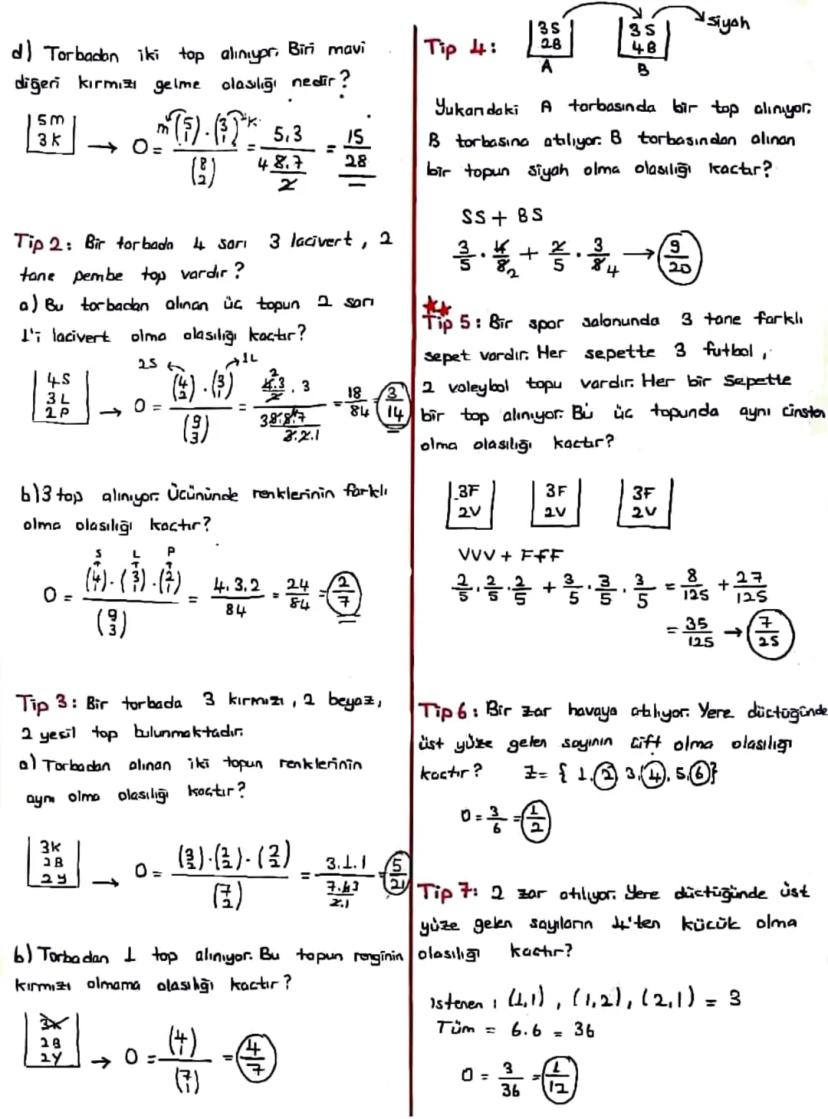 d) Torbadan iki top alınıyor. Biri mavi
diğeri kırmızı gelme olasılığı nedir?
5m
3K → O = m (5 1) . (3 1) K / (8 2) = 5.3 / (4 8.7 / 2) = 15/28
Tip 2: Bir torbada 4 sarı 3 lacivert, 2
tane pembe top vardır?
a) Bu torbadan alınan üç topun 2 sarı
1'i lacivert olma olasılığı kaçtır?
2S 1L
4S
3L
2P → O = (4 2) . (3 1) / (9 3) = (2 4.3 / 2 . 3) / (3 9.8.7 / 3.2.1) = 18/84 = 3/14
b) 3 top alınıyor. Üçününde renklerinin farklı
olma olasılığı kaçtır?
S L P
O = (4 1) . (3 1) . (2 1) / (9 3) = 4.3.2 / 84 = 24/84 = 2/7
Tip 3: Bir torbada 3 kırmızı, 2 beyaz,
2 yeşil top bulunmaktadır.
a) Torbadan alınan iki topun renklerinin
aynı olma olasılığı kaçtır?
3K
2B
2Y → O = (3 2) . (2 2) . (2 2) / (7 2) = 3.1.1 / (7.6 3 / 2.1) = 5/21
b) Torbadan 1 top alınıyor. Bu topun renginin
kırmızı olmama olasılığı kaçtır?
3K
2B
2Y → O = (4 1) / (7 1) = 4/7
Tip 4: 3S 2B A 3S 4B B Siyah
Yukarıdaki A torbasında bir top alınıyor.
B torbasına atılıyor. B torbasından alınan
bir topun siyah olma olasılığı kaçtır?
SS + BS
3/5 . 4/8 2 + 2/5 . 3/8 4 → 9/20
Tip 5: Bir spor salonunda 3 tane farklı
sepet vardır. Her sepette 3 futbol,
2 voleybol topu vardır. Her bir sepette
bir top alınıyor. Bu üç topunda aynı cinsten
olma olasılığı kaçtır?
3F 3F 3F
2V 2V 2V
VVV + FFF
2/5 . 2/5 . 2/5 + 3/5 . 3/5 . 3/5 = 8/125 + 27/125
= 35/125 → 7/25
Tip 6: Bir zar havaya atılıyor. Yere düştüğünde
üst yüze gelen sayının çift olma olasılığı
kaçtır? Z = { 1, 2, 3, 4, 5, 6 }
O = 3/6 = 1/2
Tip 7: 2 zar atılıyor. Yere düştüğünde üst
yüze gelen sayıların 4'ten küçük olma
olasılığı kaçtır?
İstenen : (1,1), (1,2), (2,1) = 3
Tüm = 6.6 = 36
O = 3/36 = 1/12